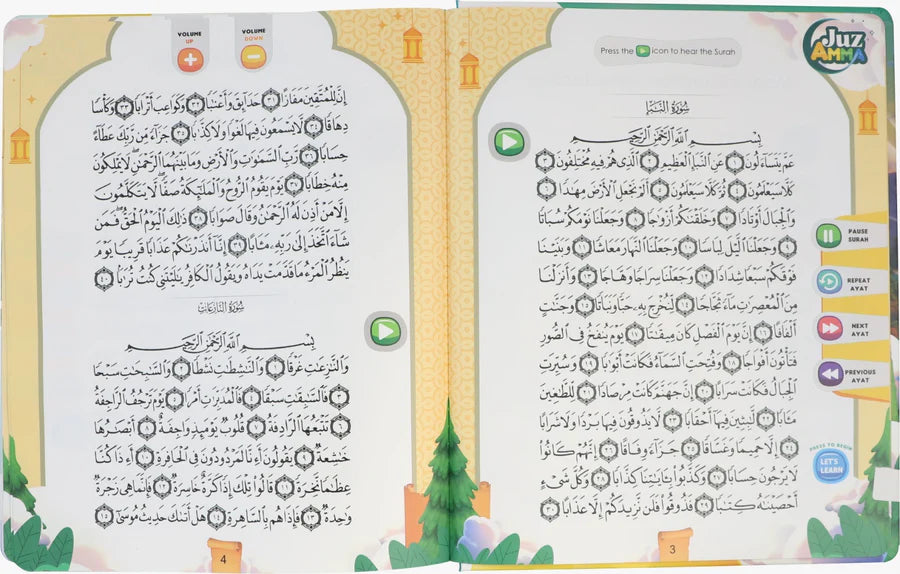 Juz
AMMA
Press the icon to hear the Surah
سُورَةُ النَّبَإِ
بِسْمِ ٱللَّهِ ٱلرَّحْمَٰنِ ٱلرَّحِيمِ
عَمَّ يَتَسَآءَلُونَ ١ عَنِ ٱلنَّبَإِ ٱلْعَظِيمِ ٢ ٱلَّذِى هُمْ فِيهِ مُخْتَلِفُونَ ٣
كَلَّا سَيَعْلَمُونَ ٤ ثُمَّ كَلَّا سَيَعْلَمُونَ ٥ أَلَمْ نَجْعَلِ ٱلْأَرْضَ مِهَٰدًا ٦
وَٱلْجِبَالَ أَوْتَادًا ٧ وَخَلَقْنَٰكُمْ أَزْوَٰجًا ٨ وَجَعَلْنَا نَوْمَكُمْ سُبَاتًا
٩ وَجَعَلْنَا ٱلَّيْلَ لِبَاسًا ١٠ وَجَعَلْنَا ٱلنَّهَارَ مَعَاشًا ١١ وَبَنَيْنَا
فَوْقَكُمْ سَبْعًا شِدَادًا ١٢ وَجَعَلْنَا سِرَاجًا وَهَّاجًا ١٣ وَأَنزَلْنَا
مِنَ ٱلْمُعْصِرَٰتِ مَآءً ثَجَّاجًا ١٤ لِّنُخْرِجَ بِهِۦ حَبًّا وَنَبَاتًا ١٥ وَجَنَّٰتٍ
أَلْفَافًا ١٦ إِنَّ يَوْمَ ٱلْفَصْلِ كَانَ مِيقَٰتًا ١٧ يَوْمَ يُنفَخُ فِى ٱلصُّورِ
فَتَأْتُونَ أَفْوَاجًا ١٨ وَفُتِحَتِ ٱلسَّمَآءُ فَكَانَتْ أَبْوَٰبًا ١٩ وَسُيِّرَتِ
ٱلْجِبَالُ فَكَانَتْ سَرَابًا ٢٠ إِنَّ جَهَنَّمَ كَانَتْ مِرْصَادًا ٢١ لِّلطَّٰغِينَ
مَـَٔابًا ٢٢ لَّٰبِثِينَ فِيهَآ أَحْقَابًا ٢٣ لَّا يَذُوقُونَ فِيهَا بَرْدًا وَلَا شَرَابًا
٢٤ إِلَّا حَمِيمًا وَغَسَّاقًا ٢٥ جَزَآءً وِفَاقًا ٢٦ إِنَّهُمْ كَانُوا۟
لَا يَرْجُونَ حِسَابًا ٢٧ وَكَذَّبُوا۟ بِـَٔايَٰتِنَا كِذَّابًا ٢٨ وَكُلَّ شَىْءٍ
أَحْصَيْنَٰهُ كِتَٰبًا ٢٩ فَذُوقُوا۟ فَلَن نَّزِيدَكُمْ إِلَّا عَذَابًا ٣٠
PAUSE
SURAH
REPEAT
AYAT
NEXT
AYAT
PREVIOUS
AYAT
PRESS TO BEGIN
LET'S
LEARN
3
VOLUME
UP
VOLUME
DOWN
إِنَّ لِلْمُتَّقِينَ مَفَازًا ٣١ حَدَآئِقَ وَأَعْنَٰبًا ٣٢ وَكَوَاعِبَ أَتْرَابًا ٣٣ وَكَأْسًا
دِهَاقًا ٣٤ لَّا يَسْمَعُونَ فِيهَا لَغْوًا وَلَا كِذَّٰبًا ٣٥ جَزَآءً مِّن رَّبِّكَ عَطَآءً
حِسَابًا ٣٦ رَّبِّ ٱلسَّمَٰوَٰتِ وَٱلْأَرْضِ وَمَا بَيْنَهُمَا ٱلرَّحْمَٰنِ ۖ لَا يَمْلِكُونَ
مِنْهُ خِطَابًا ٣٧ يَوْمَ يَقُومُ ٱلرُّوحُ وَٱلْمَلَٰٓئِكَةُ صَفًّا ۖ لَّا يَتَكَلَّمُونَ
إِلَّا مَنْ أَذِنَ لَهُ ٱلرَّحْمَٰنُ وَقَالَ صَوَابًا ٣٨ ذَٰلِكَ ٱلْيَوْمُ ٱلْحَقُّ ۖ فَمَن
شَآءَ ٱتَّخَذَ إِلَىٰ رَبِّهِۦ مَـَٔابًا ٣٩ إِنَّآ أَنذَرْنَٰكُمْ عَذَابًا قَرِيبًا يَوْمَ
يَنظُرُ ٱلْمَرْءُ مَا قَدَّمَتْ يَدَاهُ وَيَقُولُ ٱلْكَافِرُ يَٰلَيْتَنِى كُنتُ تُرَٰبًۢا ٤٠
سُورَةُ النَّازِعَاتِ
بِسْمِ ٱللَّهِ ٱلرَّحْمَٰنِ ٱلرَّحِيمِ
وَٱلنَّٰزِعَٰتِ غَرْقًا ١ وَٱلنَّٰشِطَٰتِ نَشْطًا ٢ وَٱلسَّٰبِحَٰتِ سَبْحًا
٣ فَٱلسَّٰبِقَٰتِ سَبْقًا ٤ فَٱلْمُدَبِّرَٰتِ أَمْرًا ٥ يَوْمَ تَرْجُفُ ٱلرَّاجِفَةُ
٦ تَتْبَعُهَا ٱلرَّادِفَةُ ٧ قُلُوبٌ يَوْمَئِذٍ وَاجِفَةٌ ٨ أَبْصَٰرُهَا
خَٰشِعَةٌ ٩ يَقُولُونَ أَءِنَّا لَمَرْدُودُونَ فِى ٱلْحَافِرَةِ ١٠ أَءِذَا كُنَّا
عِظَٰمًا نَّخِرَةً ١١ قَالُوا۟ تِلْكَ إِذًا كَرَّةٌ خَاسِرَةٌ ١٢ فَإِنَّمَا هِىَ زَجْرَةٌ
وَٰحِدَةٌ ١٣ فَإِذَا هُم بِٱلسَّاهِرَةِ ١٤ هَلْ أَتَىٰكَ حَدِيثُ مُوسَىٰٓ ١٥
4